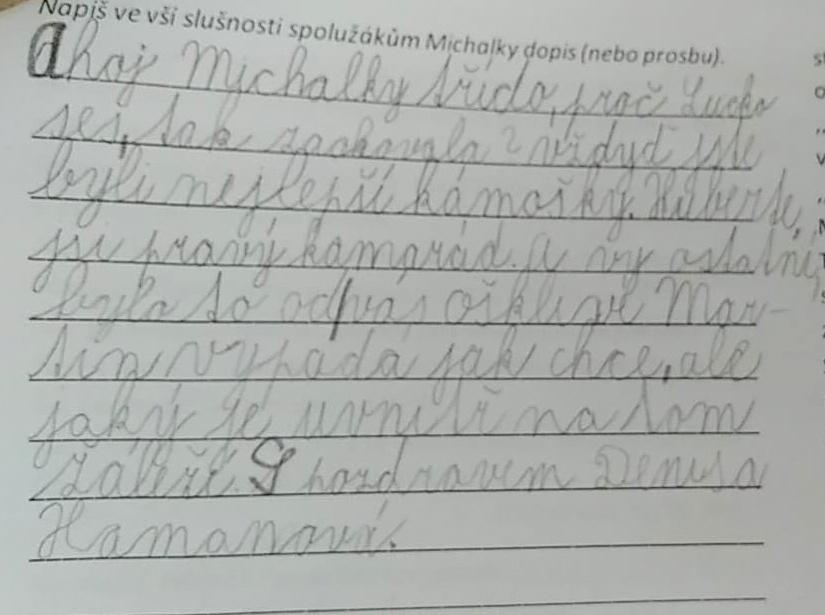 Napiš ve vší slušnosti spolužákům Michalky dopis (nebo prosbu).
ahoj Michalky třído, proč Lucko
ses, tak zachovala? vždyť jste
byli nejlepší kámošky. Huberte,
jsi pravý kamarád. A vy ostatní,
bylo to od vás ošklivé Mar-
tin vypadá jak chce, ale
jaký je uvnitř na tom
záleží. S pozdravem Denisa
Hamanová.